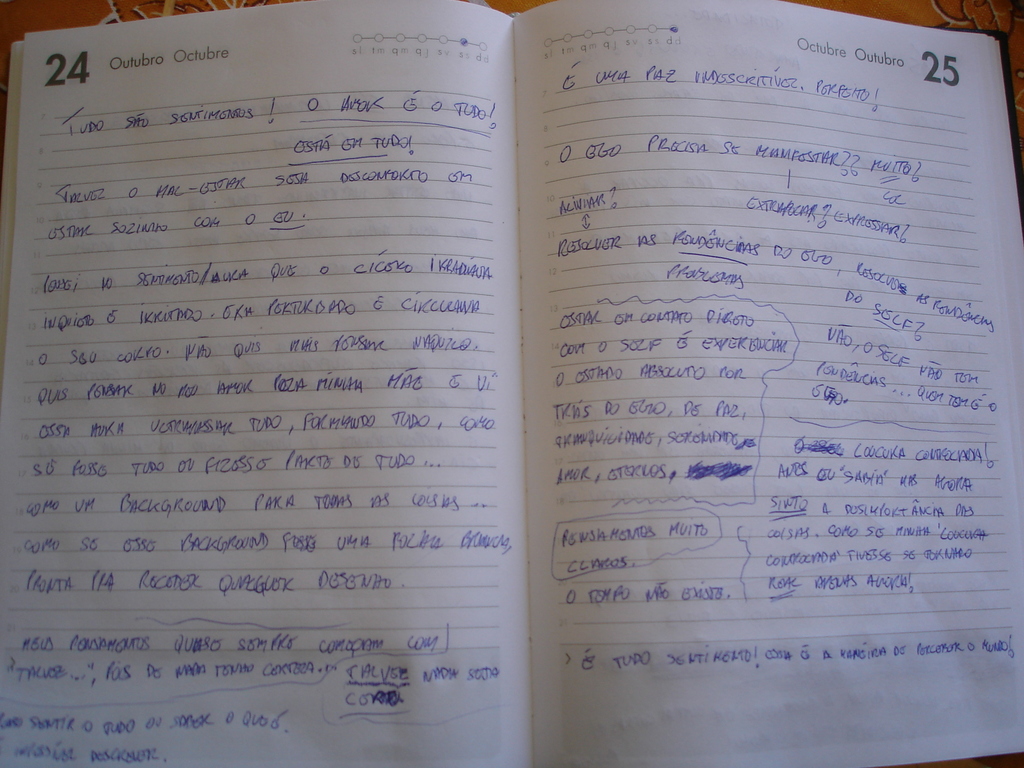 24 Outubro Octubre
sl tm qm qj sv ss dd
TUDO SÃO SENTIMENTOS! O AMOR É O TUDO!
ESTÁ EM TUDO!
TALVEZ O MAL-ESTAR SEJA DESCONFORTO EM
ESTAR SOZINHO COM O EU.
NO SENTIMENTO/AURA QUE O CÍCERO IRRADIAVA
INQUIETO E IRRITADO. ERA PERTURBADO E CIRCULAVA
O SEU CORPO. NÃO QUIS MAIS PENSAR NAQUILO.
QUIS PENSAR NO MEU AMOR PELA MINHA MÃE E VI
ESSA AURA ULTRAPASSAR TUDO, FORMANDO TUDO, COMO
SE FOSSE TUDO OU FIZESSE PARTE DE TUDO...
COMO UM BACKGROUND PARA TODAS AS COISAS...
COMO SE ESSE BACKGROUND FOSSE UMA FOLHA BRANCA,
PRONTA PRA RECEBER QUALQUER DESENHO.
MEUS PENSAMENTOS QUASE SEMPRE COMEÇAM COM
"TALVEZ...", POIS DE NADA TENHO CERTEZA... TALVEZ NADA SEJA
CERTO
SENTIR O TUDO OU SABER O QUE É.
É IMPOSSÍVEL DESCREVER.
Octubre Outubro 25
sl tm qm qj sv ss dd
É UMA PAZ INDESCRITÍVEL. PERFEITO!
O EGO PRECISA SE MANIFESTAR?? MUITO?
EXTRAPOLAR? EXPRESSAR?
ALIVIAR?
RESOLVER AS PENDÊNCIAS DO EGO, RESOLVE AS PENDÊNCIAS
PROBLEMAS
DO SELF?
NÃO, O SELF NÃO TEM
PENDÊNCIAS... QUEM TEM É O
EGO.
ESTAR EM CONTATO DIRETO
COM O SELF É EXPERIENCIAR
O ESTADO ABSOLUTO POR
TRÁS DO EGO, DE PAZ,
TRANQUILIDADE, SERENIDADE,
AMOR, ETERNOS,
PENSAMENTOS MUITO
CLAROS.
O TEMPO NÃO EXISTE.
LOUCURA CONTROLADA!
ANTES EU "SABIA" MAS AGORA
SINTO A DESIMPORTÂNCIA DAS
COISAS. COMO SE MINHA "LOUCURA
CONTROLADA" TIVESSE SE TORNADO
REAL APENAS AGORA!
> É TUDO SENTIMENTO! ESSA É A MANEIRA DE PERCEBER O MUNDO!